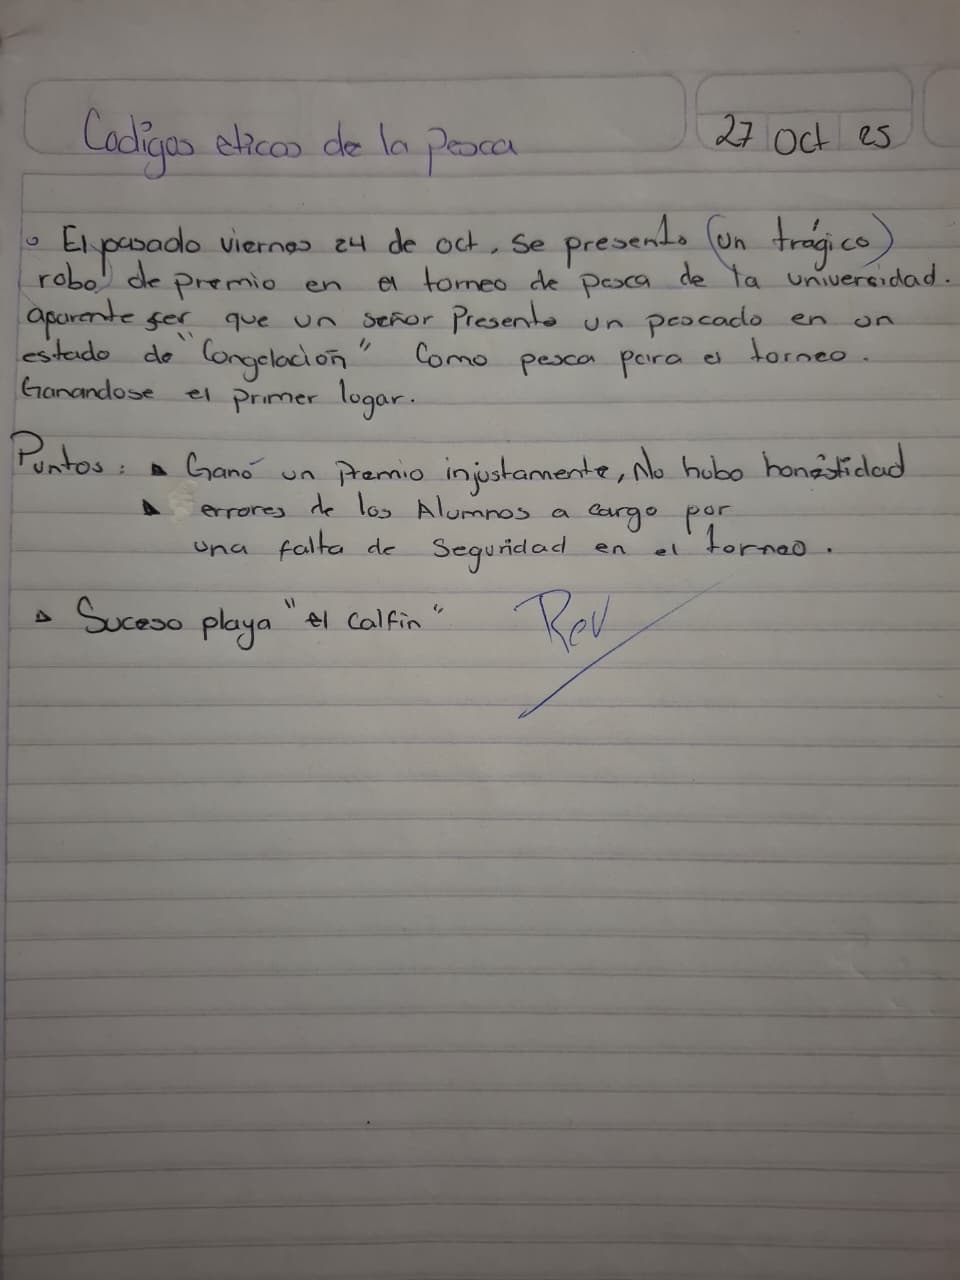 Codigos eticos de la pesca
27 oct 25
El pasado viernes 24 de oct, se presento (un trágico)
robo de premio en el torneo de pesca de la universidad.
aparente ser que un señor Presento un pescado en un
estado de "Congelación" Como pesca para el torneo.
Ganandose el primer logar.
Puntos: Ganó un Premio injustamente, No hubo honéstidad
errores de los Alumnos a cargo por
una falta de Seguridad en el torneo.
Suceso playa "el Calfin"
Rev